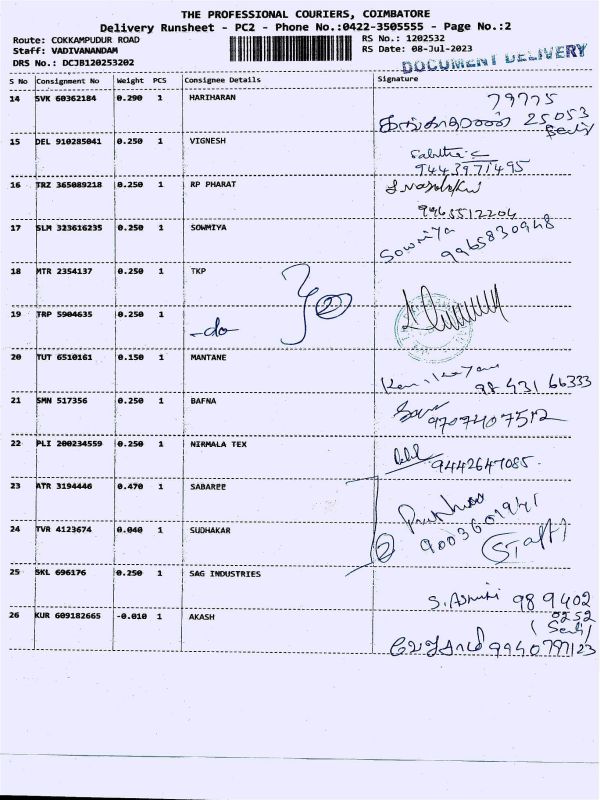 THE PROFESSIONAL COURIERS, COIMBATORE
Delivery Runsheet - PC2 - Phone No.:0422-3505555 - Page No.:2
Route: COKKAMPUDUR ROAD RS No.: 1202532
Staff: VADIVANANDAM RS Date: 08-Jul-2023
DRS No.: DCJB120253202 DOCUMENT DELIVERY
S No Consignment No Weight PCS Consignee Details Signature
14 SVK 60362184 0.290 1 HARIHARAN 79775
25053
15 DEL 910285041 0.250 1 VIGNESH
Sabitha
9443971495
16 TRZ 365089218 0.250 1 RP PHARAT
9965512204
17 SLM 323616235 0.250 1 SOWMIYA Sowmiya
9965830948
18 MTR 2354137 0.250 1 TKP
19 TRP 5904635 0.250 1 -do- 2
20 TUT 6510161 0.150 1 MANTANE
98431 66333
21 SMN 517356 0.250 1 BAFNA
9707407512
22 PLI 200234559 0.250 1 NIRMALA TEX
9442647085
23 ATR 3194446 0.470 1 SABAREE
9003601941
24 TVR 4123674 0.040 1 SUDHAKAR 2 (Staff)
25 SKL 696176 0.250 1 SAG INDUSTRIES
989402
0252
26 KUR 609182665 -0.010 1 AKASH
9940797123